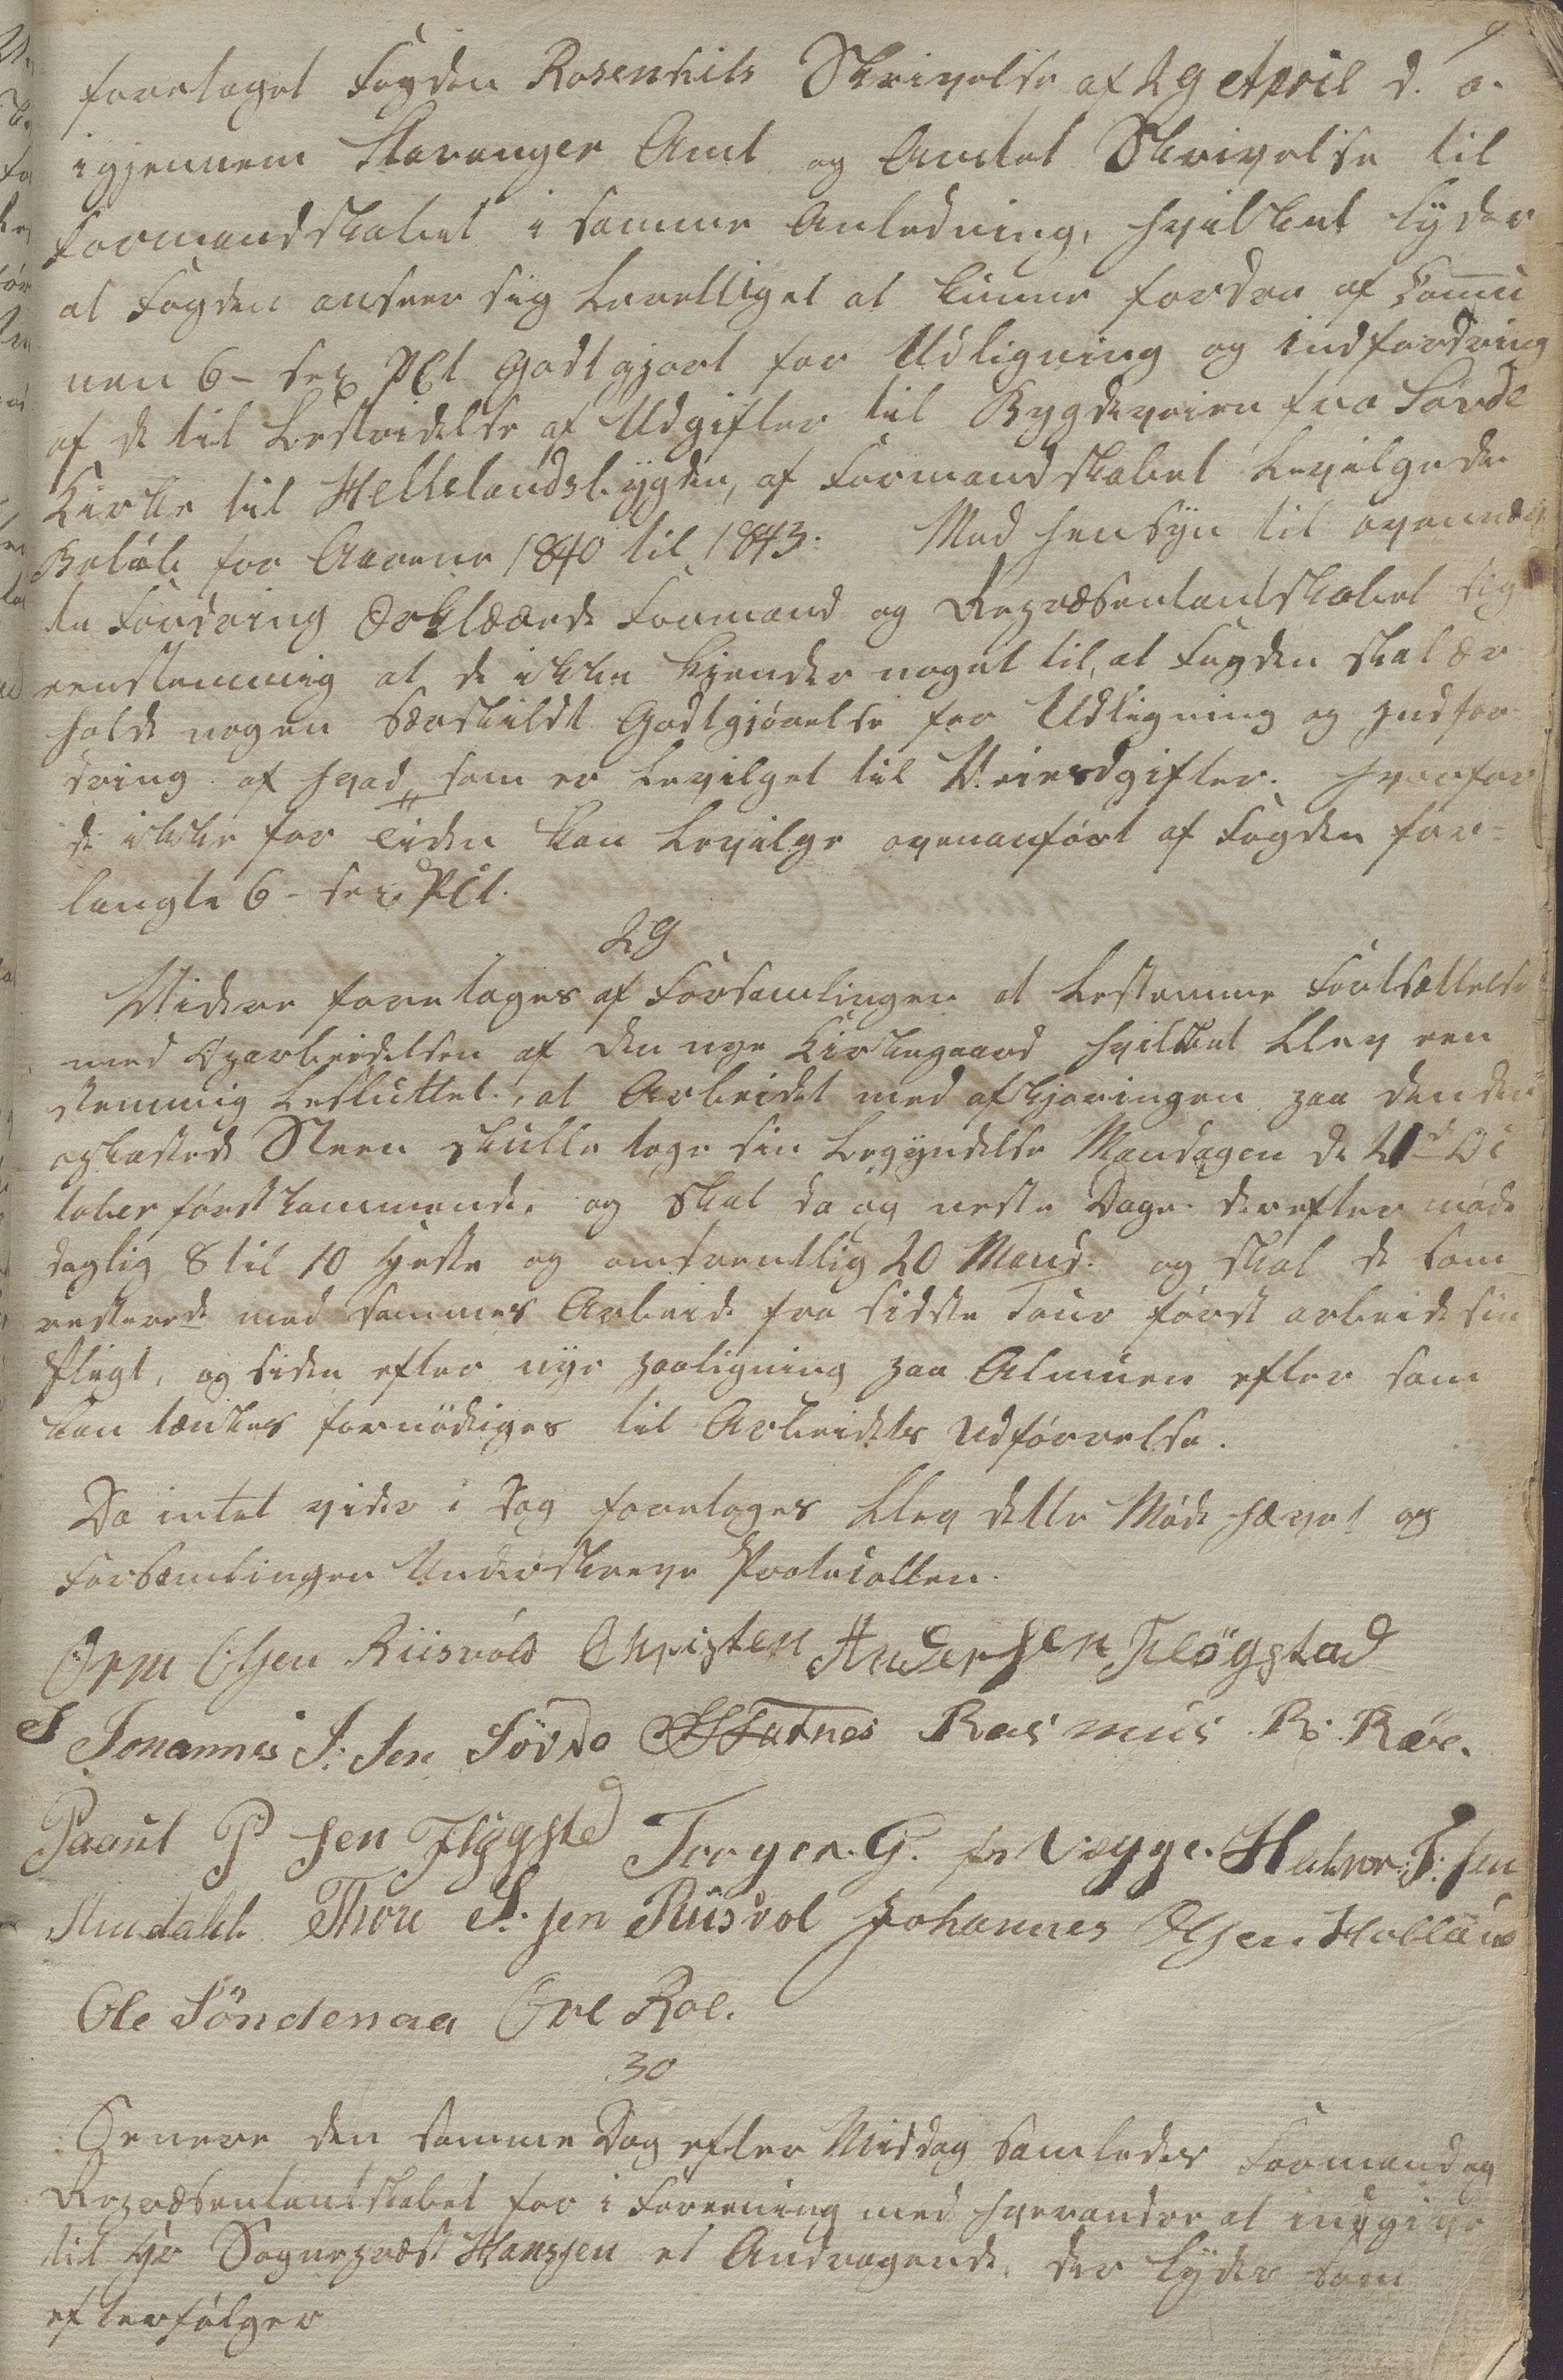 9
foretaget Fogden Rosenkils Skrivelse af 29 April d. a.
igjennem Stavanger Amt og Amtet Skrivelse til
Formandskabet i samme Anledning, hvilket lyder
at Fogden anseer sig berettiget at kunne fordre af Commu
nen 6 – sex PCt godtgjort for Udligning og indfordring
af de til bestridelse af Udgifter til Bygdeveien fra Søvde
Kirke til Hellelandsbygden, af Formandskabet bevilgede
Beløb for Aarene 1840 til 1843. Med hensyn til ovenmel
te Fordring Erklærede Formand og Repræsentantskabet sig
eenstemmig at de ikke kjender noget til, at Fogden skal er
holde nogen særskildt Godtgjørelse for Udligning og Indfor
dring af hvad som er bevilget til Veiudgifter. hvorfor
de ikke for tiden kan bevilge ovenanført af Fogden for=
langte 6 – sex PCt.
29
Videre foretages af Forsamlingen at bestemme Fortsættelse
med Oparbeidelsen af den nye Kirkegaard hvilket blev een
stemmig besluttet, at Arbeidet med afkjøringen paa den der
opkastede Steen skulle tage sin begyndelse Mandagen d. 21de Oc
tober førstkommende, og skal da og neste Dage derefter møde
daglig 8 til 10 Heste og omtrentlig 20 Mand. og skal de som
resterede med sammes Arbeide fra sidste Tour først arbeide sin
Pligt, og siden efter nye paaligning paa Almuen efter som
kan tænkes fornødiges til Arbeidets Udførrelse.
Da intet vider i Dag foretages blev dette Møde hævet og
Forsamlingen Underskreve Protocollen.
Orm Olsen Riisvold Christen Andersen Fløgstad
Johannes J: Sen Søvde Rasmus R: Røe.
Paaul P sen Fløgsted Torger G. sn Vegge. Halvor: T: sen
Thore S: sen Riisvol Johannes Olsen Holland
Ole Söndenaa Ove Roe.
30
Senere den samme Dag efter Middag samledes Formand og
Repræsentantskabet for i Foreening med hverandre at indgive
til Hr Sogneprest Hanssen et Andragende, der lyder som
efterfølger